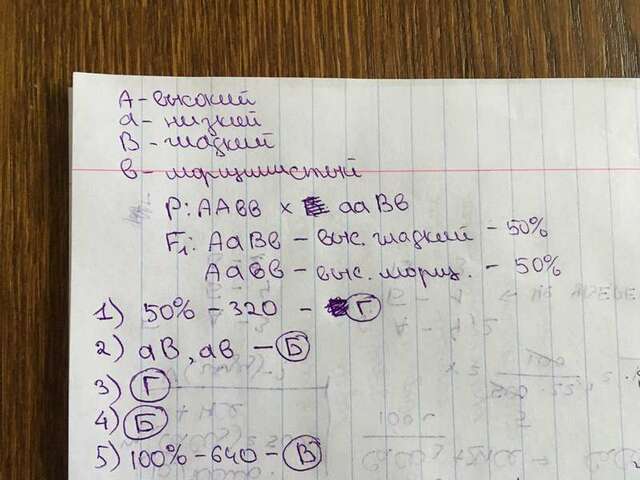 А-высокий
а-низкий
В-гладкий
в-морщинистый
Р: ААвв х ааВв
F₁: АаВв - выс. гладкий - 50%
Аавв - выс. морщ. - 50%
1) 50% - 320 - Г
2) аВ, ав - Б
3) Г
4) Б
5) 100% - 640 - В